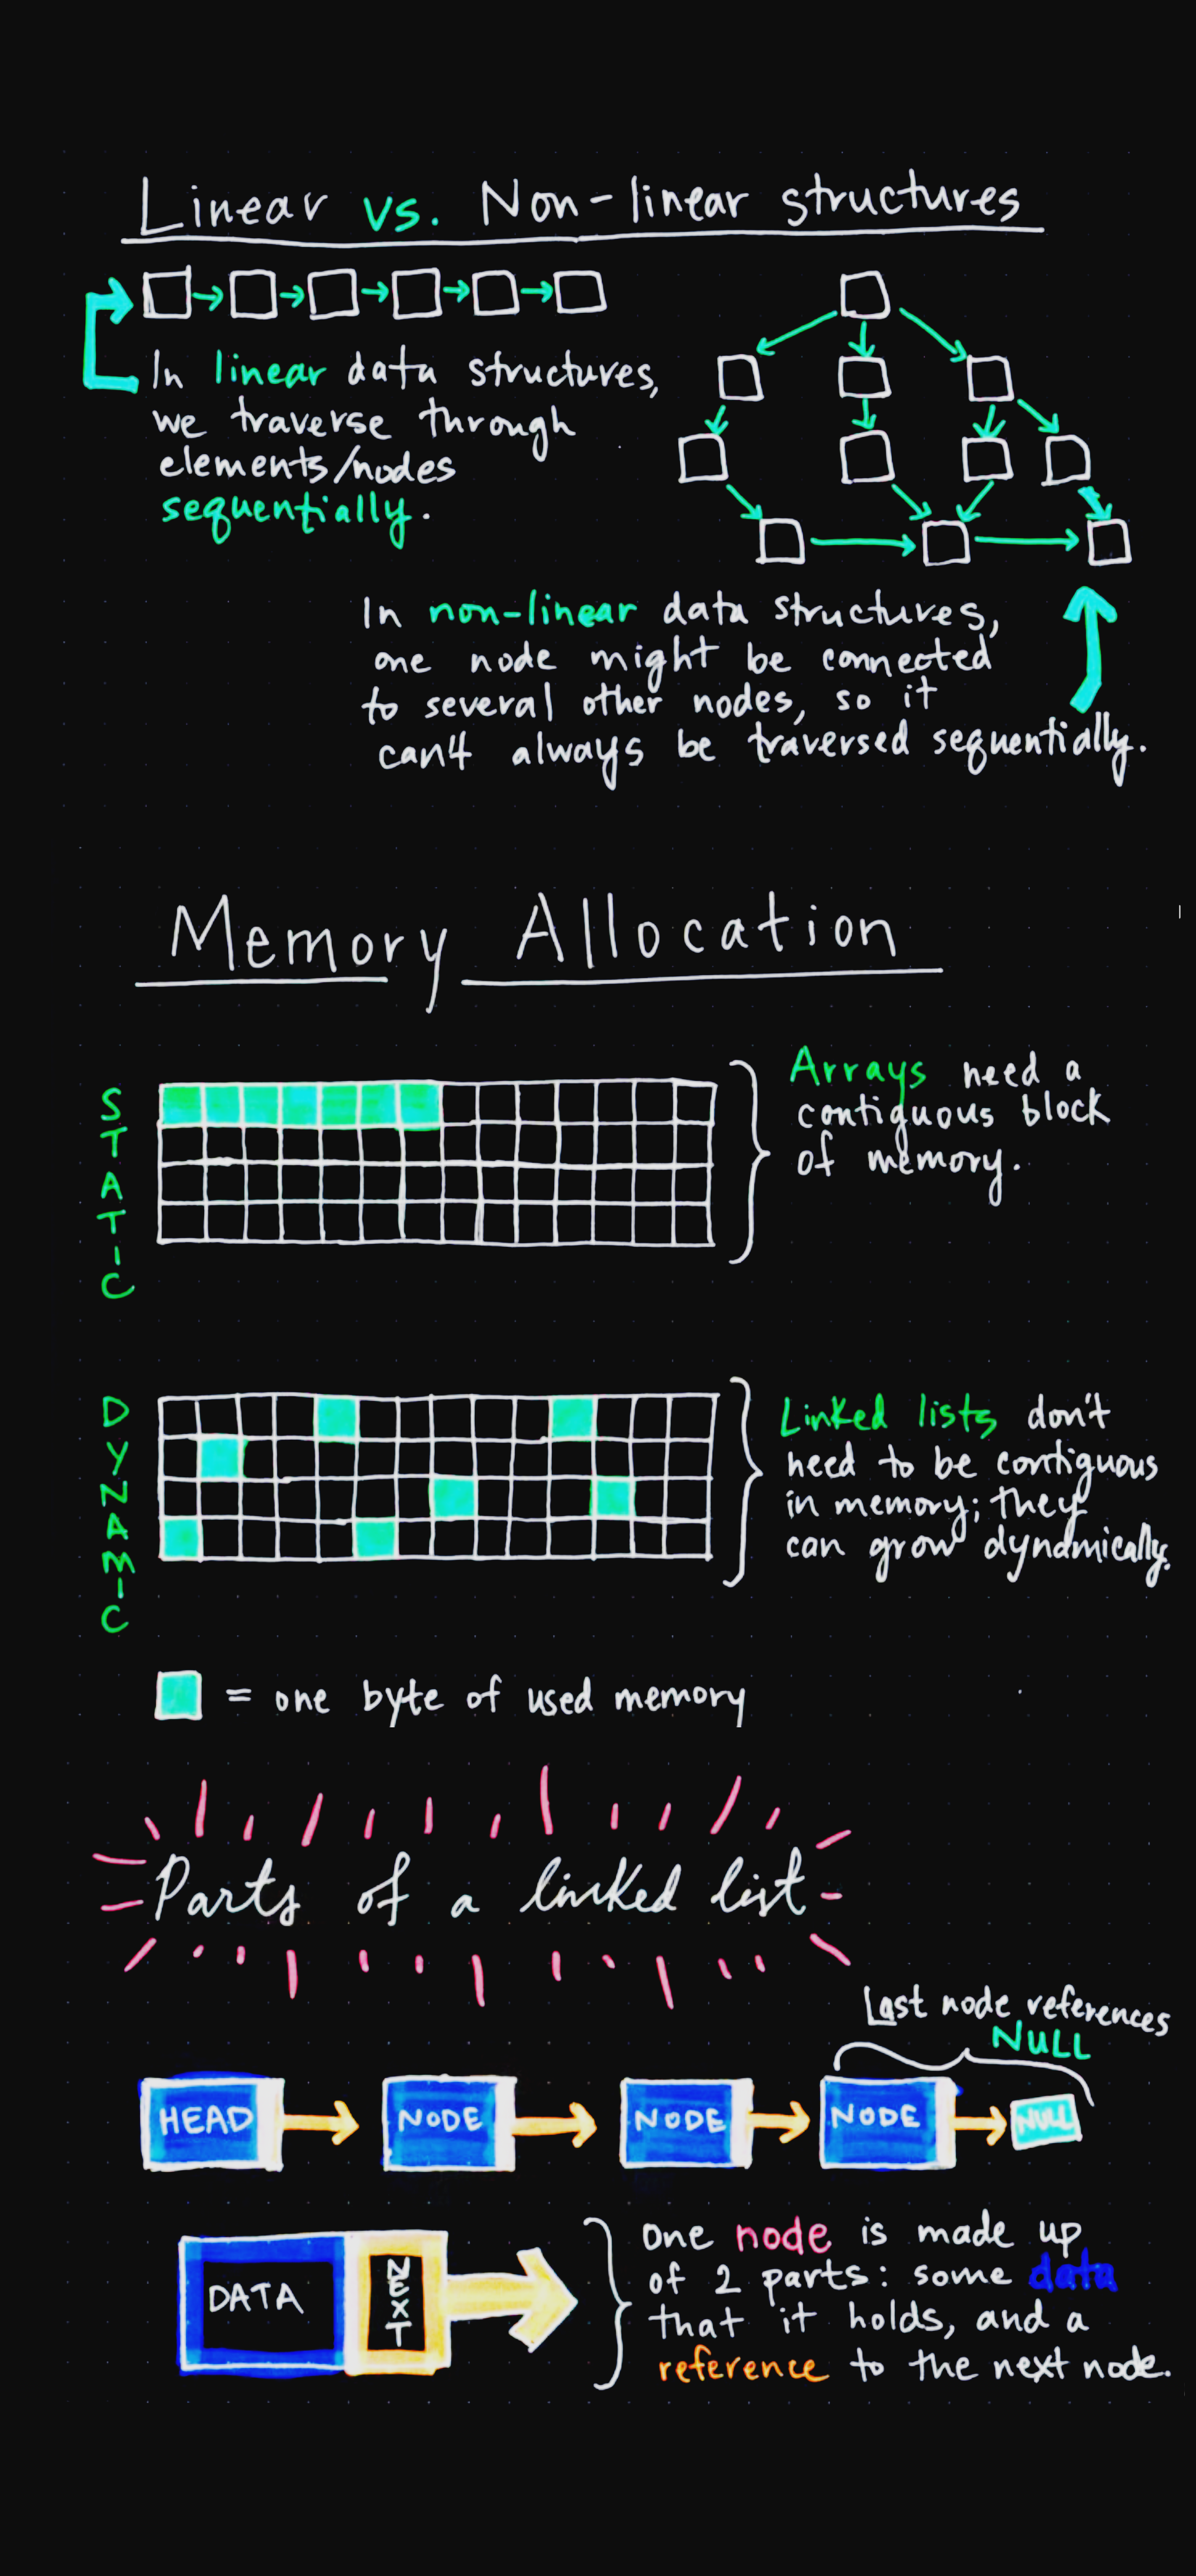 Linear vs. Non-linear structures
In linear data structures,
we traverse through
elements/nodes
sequentially.
In non-linear data structures,
one node might be connected
to several other nodes, so it
can't always be traversed sequentially.
Memory Allocation
STATIC
Arrays need a
contiguous block
of memory.
DYNAMIC
Linked lists don't
need to be contiguous
in memory; they
can grow dynamically.
= one byte of used memory
Parts of a linked list
Last node references
NULL
HEAD NODE NODE NODE NULL
DATA NEXT
One node is made up
of 2 parts: some data
that it holds, and a
reference to the next node.